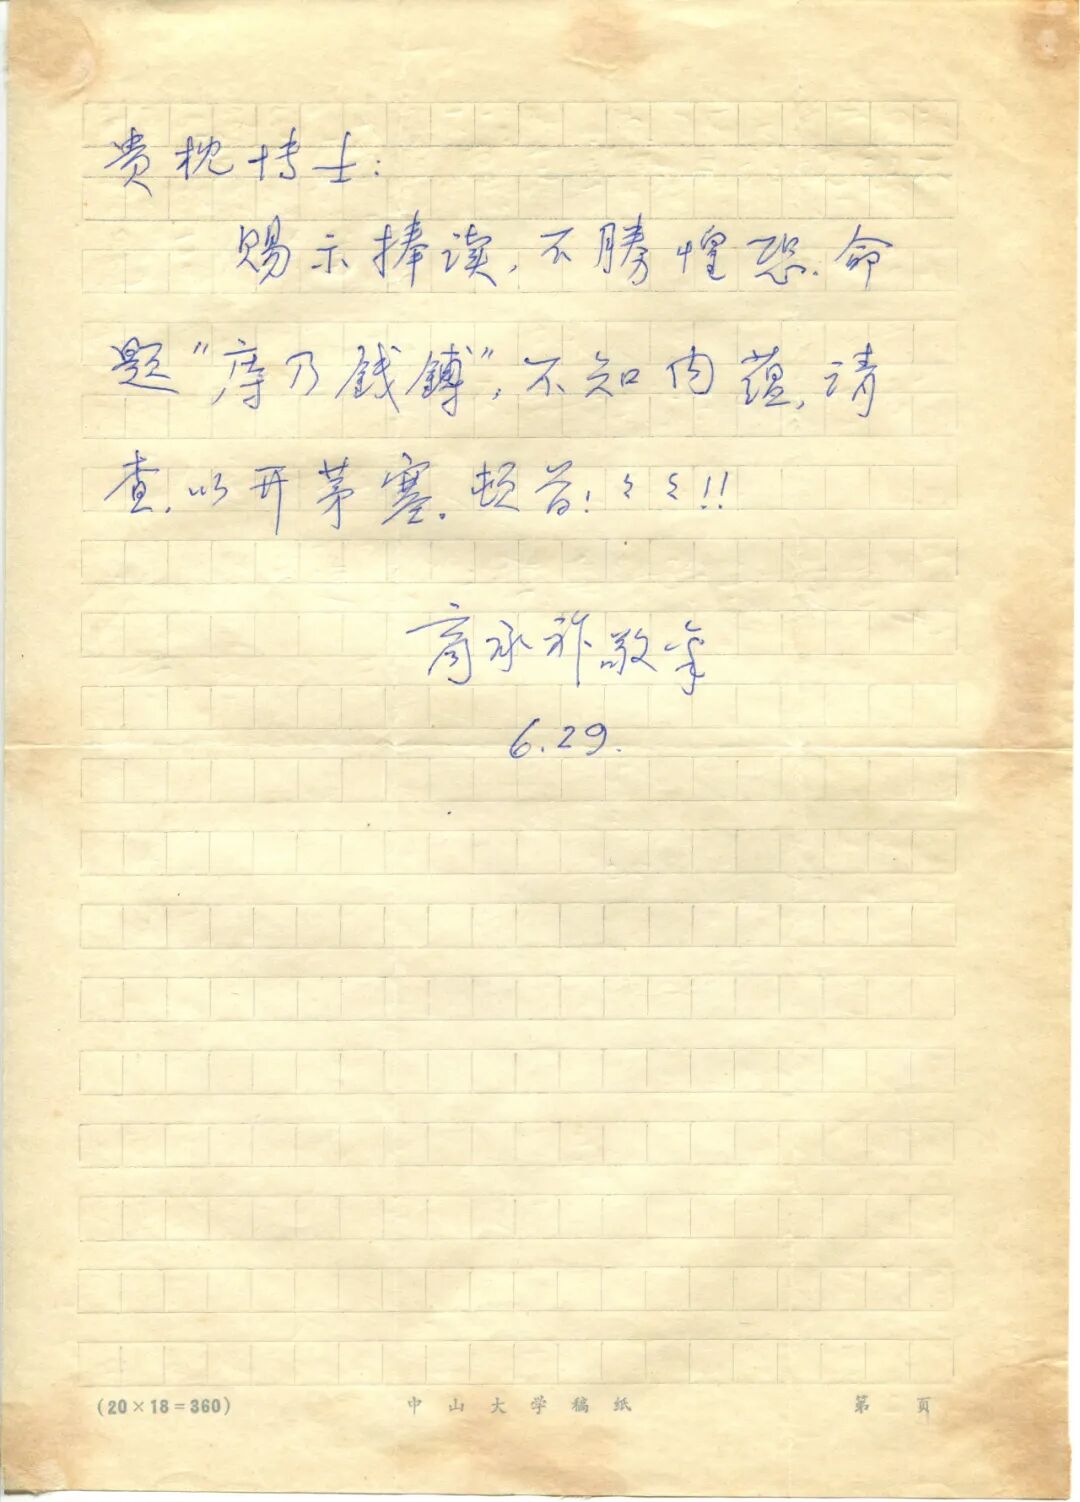 贵枕博士:
赐示捧读,不勝惶恐.命
题"庤乃錢鎛",不知内蕴,请
查.以开茅塞.顿首!々々!!
商承祚敬拿
6.29.
(20×18=360) 中山大学稿紙 第 页